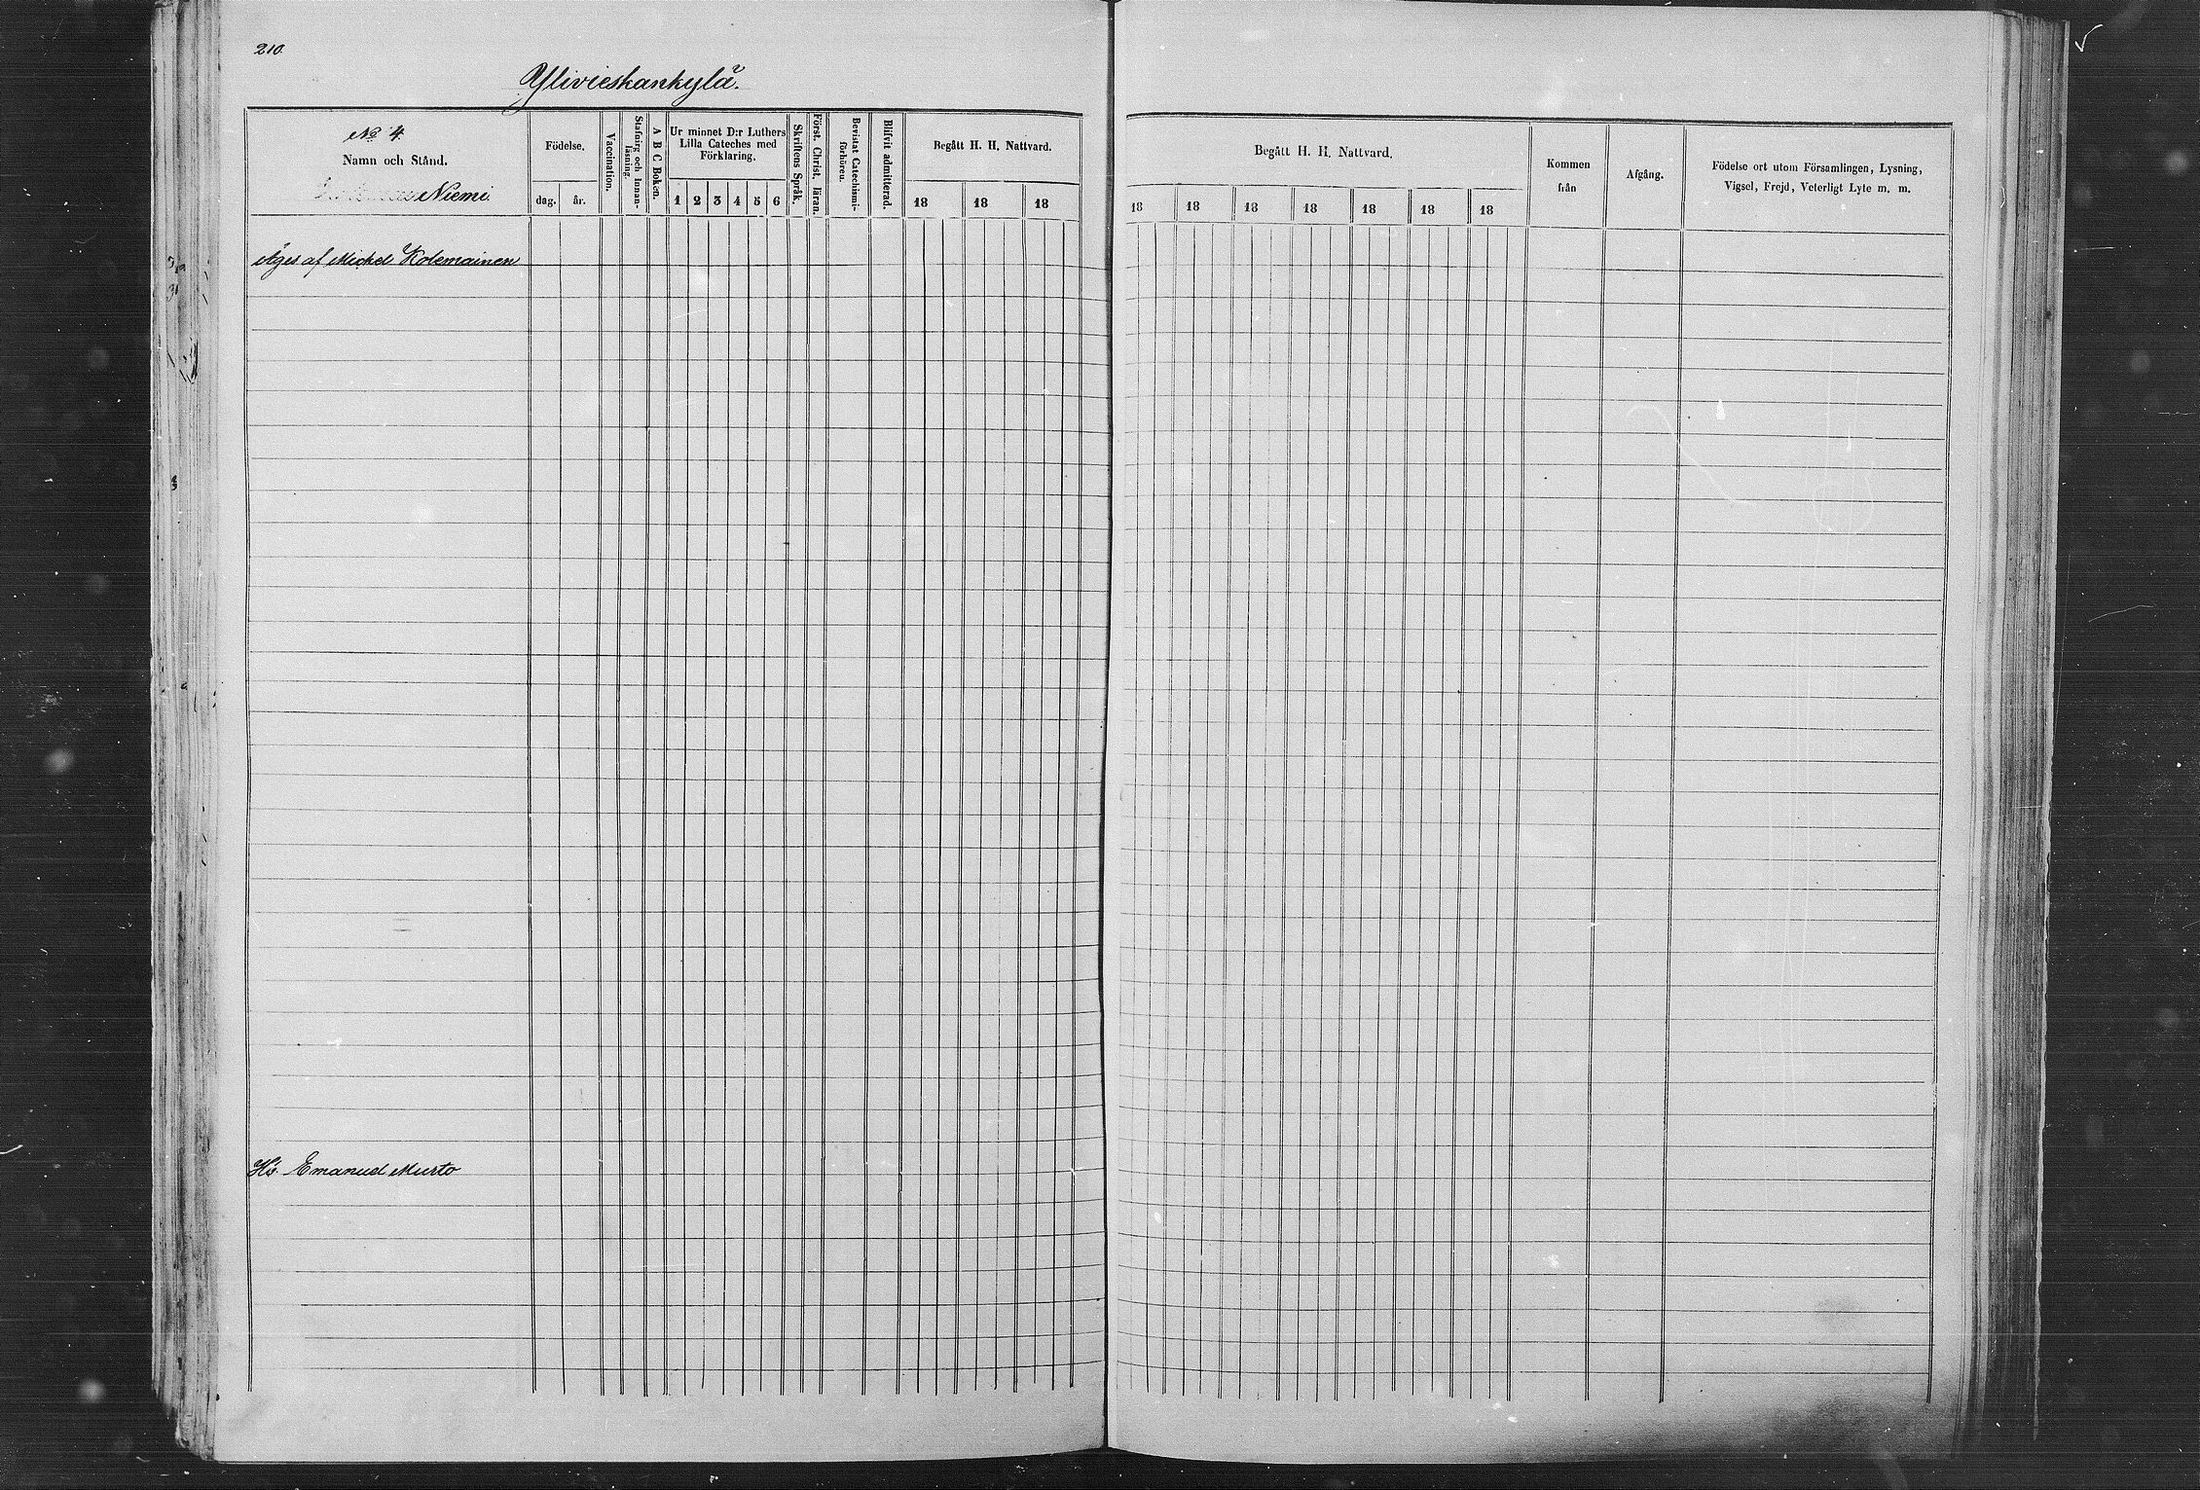 210.
Ylivieskankylä.
No 4.
Namn och Stånd.
Niemi.
Födelse.
dag.
år.
Vaccination.
Stafning och Innan-
läsning.
A B C Boken.
Ur minnet D:r Luthers
Lilla Cateches med
Förklaring.
1 2 3 4 5 6
Skriftens Språk.
Först. Christ. läran.
Bevistat Catechismi-
förhören.
Blifvit admitterad.
Begått H. H. Nattvard.
18 18 18
Begått H. H. Nattvard.
18 18 18 18 18 18 18
Kommen
från
Afgång.
Födelse ort utom Församlingen, Lysning,
Vigsel, Frejd, Veterligt Lyte m. m.
Äges af Michel Kolemainen
Hs. Emanuel Murto